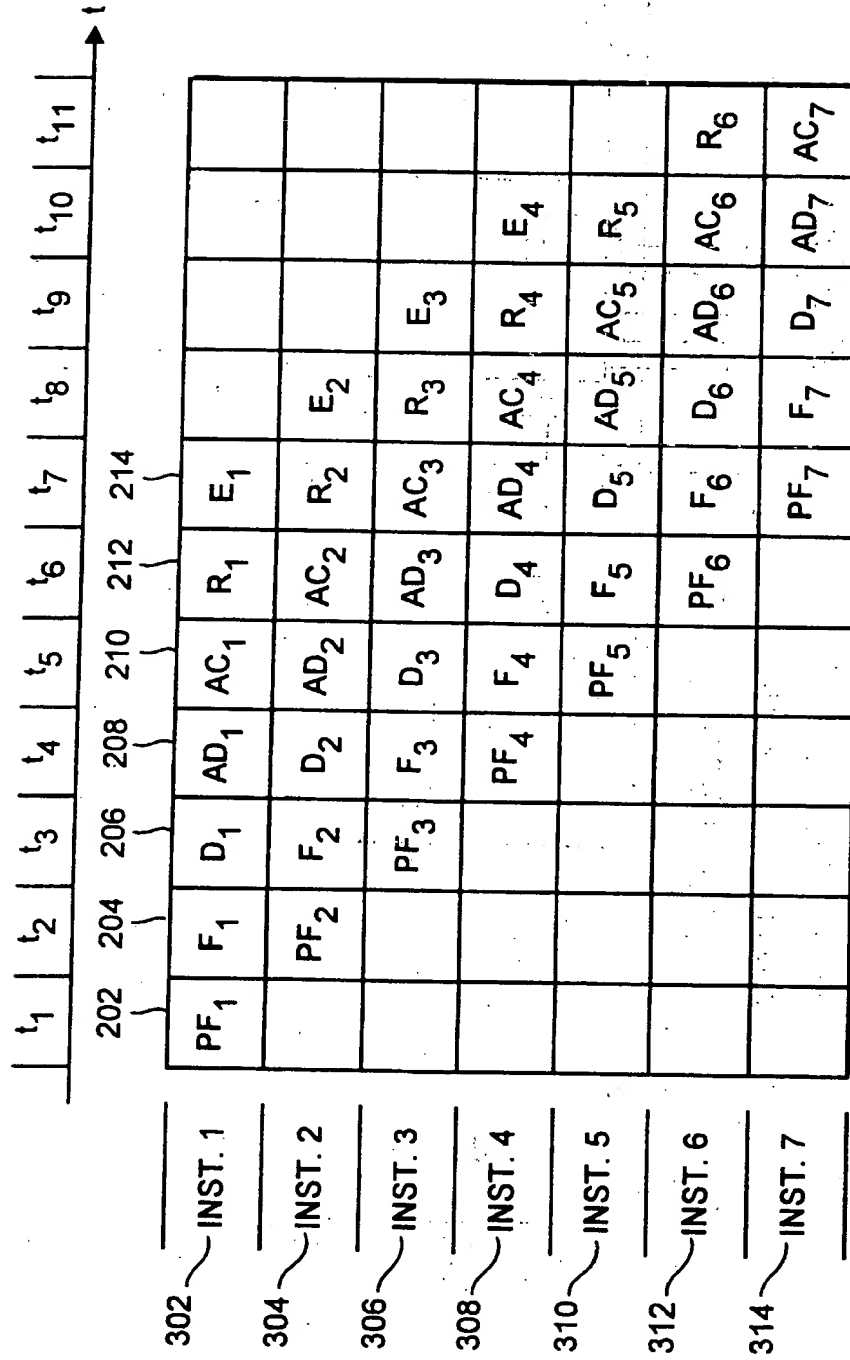 t₁ t₂ t₃ t₄ t₅ t₆ t₇ t₈ t₉ t₁₀ t₁₁ t
202 204 206 208 210 212 214
302 INST. 1 PF₁ F₁ D₁ AD₁ AC₁ R₁ E₁
304 INST. 2 PF₂ F₂ D₂ AD₂ AC₂ R₂ E₂
306 INST. 3 PF₃ F₃ D₃ AD₃ AC₃ R₃ E₃
308 INST. 4 PF₄ F₄ D₄ AD₄ AC₄ R₄ E₄
310 INST. 5 PF₅ F₅ D₅ AD₅ AC₅ R₅
312 INST. 6 PF₆ F₆ D₆ AD₆ AC₆ R₆
314 INST. 7 PF₇ F₇ D₇ AD₇ AC₇